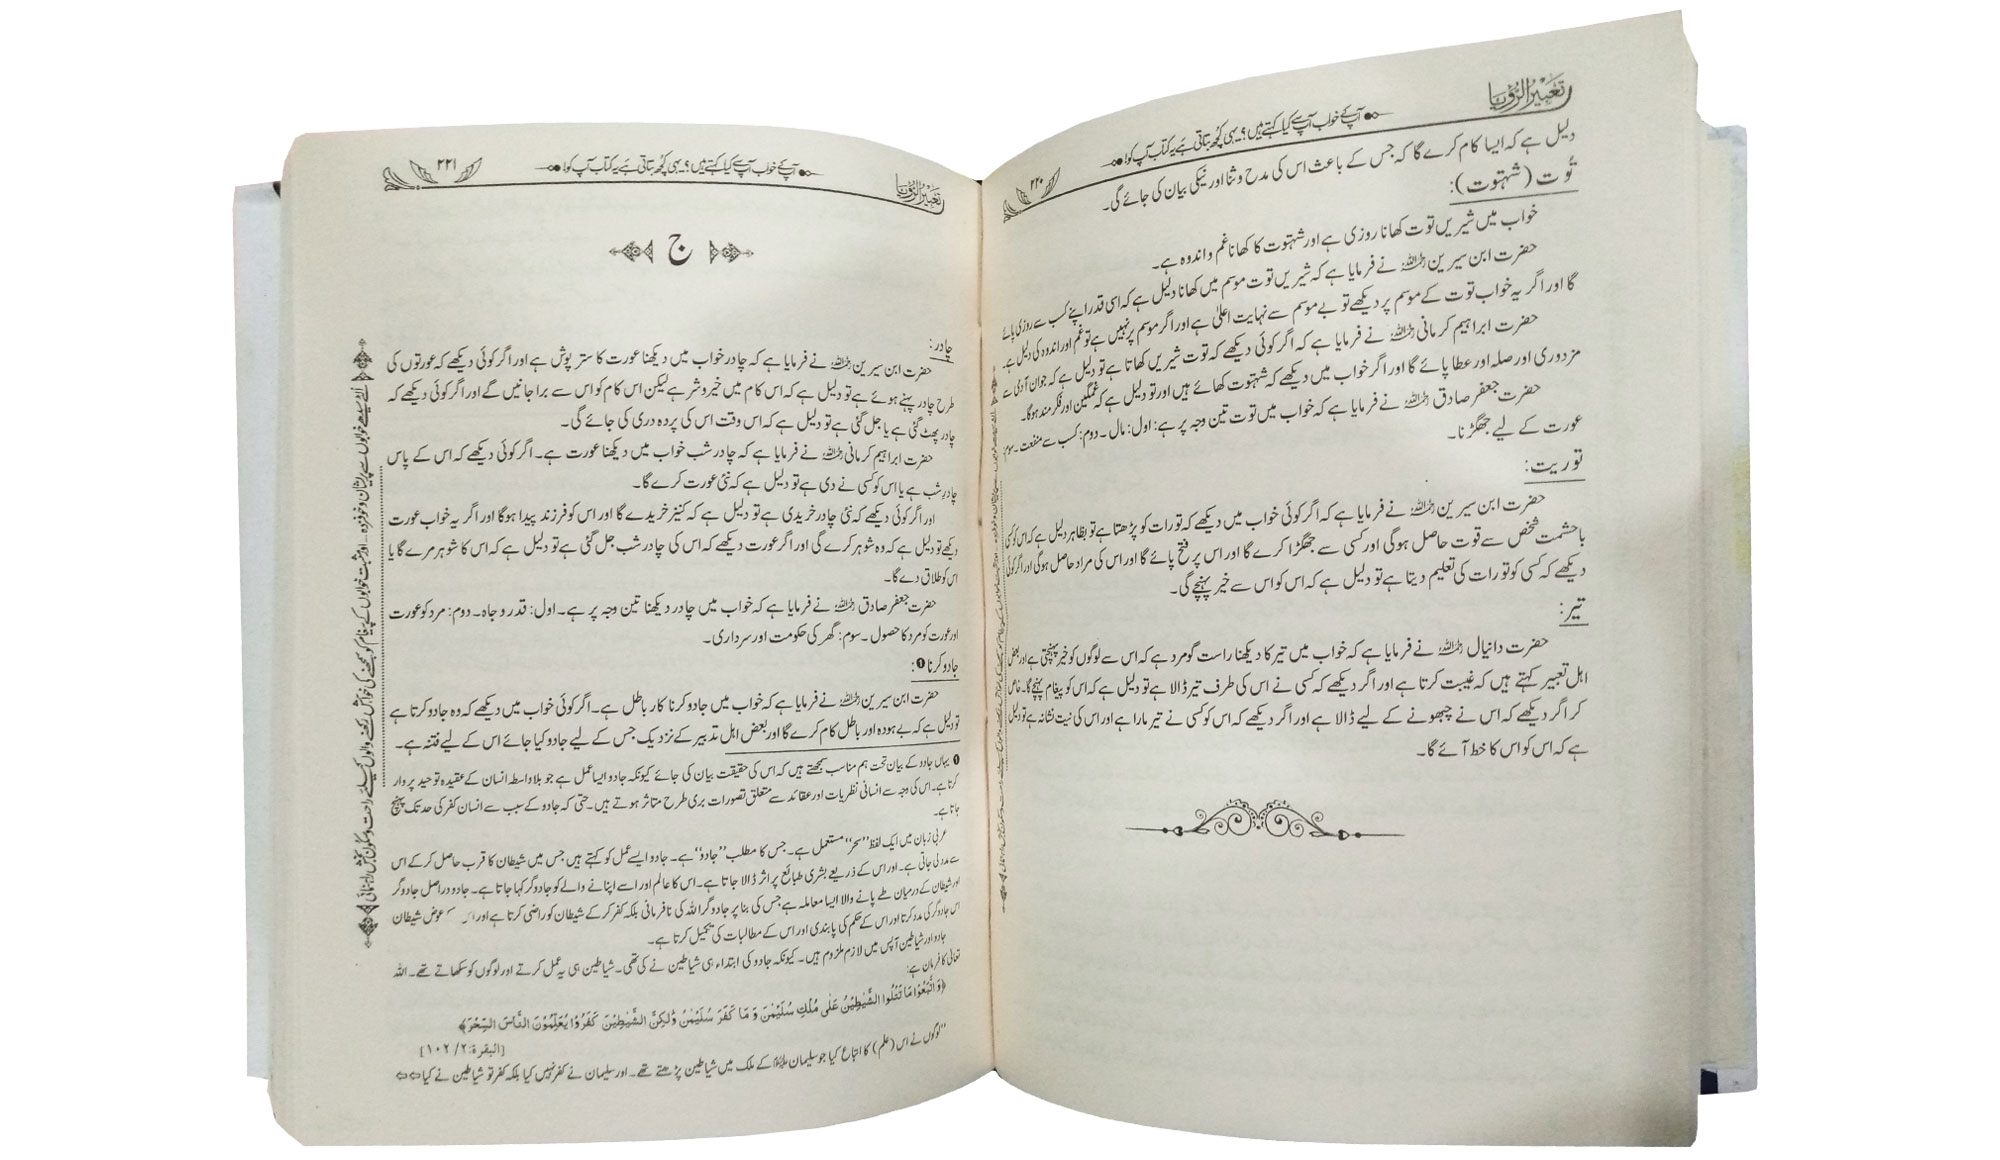 تعبیر الرؤیا
آپ کے خواب آپ سے کیا کہتے ہیں؟ یہی کچھ بتاتی ہے یہ کتاب آپ کو!
۲۲۰
دلیل ہے کہ ایسا کام کرے گا کہ جس کے باعث اس کی مدح وثنا اور نیکی بیان کی جائے گی۔
تُوت (شہتوت):
خواب میں شیریں توت کھانا روزی ہے اور شہتوت کا کھانا غم واندوہ ہے۔
حضرت ابن سیرین رحمہ اللہ نے فرمایا ہے کہ شیریں توت موسم میں کھانا دلیل ہے کہ اسی قدر اپنے کسب سے روزی پائے
گا اور اگر یہ خواب توت کے موسم پر دیکھے تو بے موسم سے نہایت اعلیٰ ہے اور اگر موسم پر نہیں ہے تو غم اور اندوہ کی دلیل ہے۔
حضرت ابراہیم کرمانی رحمہ اللہ نے فرمایا ہے کہ اگر کوئی دیکھے کہ توت شیریں کھاتا ہے تو دلیل ہے کہ جوان آدمی سے
مزدوری اور صلہ اور عطا پائے گا اور اگر خواب میں دیکھے کہ شہتوت کھائے ہیں اور تو دلیل ہے کہ غمگین اور فکر مند ہوگا۔
حضرت جعفر صادق رحمہ اللہ نے فرمایا ہے کہ خواب میں توت تین وجہ پر ہے: اول: مال۔ دوم: کسب سے منفعت۔ سوم:
عورت کے لیے جھگڑنا۔
توریت:
حضرت ابن سیرین رحمہ اللہ نے فرمایا ہے کہ اگر کوئی خواب میں دیکھے کہ تورات کو پڑھتا ہے تو بظاہر دلیل ہے کہ اس کو کسی
باحشمت شخص سے قوت حاصل ہوگی اور کسی سے جھگڑا کرے گا اور اس پر فتح پائے گا اور اس کی مراد حاصل ہوگی اور اگر کوئی
دیکھے کہ کسی کو تورات کی تعلیم دیتا ہے تو دلیل ہے کہ اس کو اس سے خیر پہنچے گی۔
تیر:
حضرت دانیال رحمہ اللہ نے فرمایا ہے کہ خواب میں تیر کا دیکھنا راست گو مرد ہے کہ اس سے لوگوں کو خیر پہنچتی ہے اور بعض
اہل تعبیر کہتے ہیں کہ غیبت کرتا ہے اور اگر دیکھے کہ کسی نے اس کی طرف تیر ڈالا ہے تو دلیل ہے کہ اس کو پیغام پہنچے گا۔ خاص
کر اگر دیکھے کہ اس نے چبھونے کے لیے ڈالا ہے اور اگر دیکھے کہ اس کو کسی نے تیر مارا ہے اور اس کی نیت نشانہ ہے تو دلیل
ہے کہ اس کو اس کا خط آئے گا۔
تعبیر الرؤیا
آپ کے خواب آپ سے کیا کہتے ہیں؟ یہی کچھ بتاتی ہے یہ کتاب آپ کو!
۲۲۱
ج
چادر:
حضرت ابن سیرین رحمہ اللہ نے فرمایا ہے کہ چادر خواب میں دیکھنا عورت کا ستر پوش ہے اور اگر کوئی دیکھے کہ عورتوں کی
طرح چادر پہنے ہوئے ہے تو دلیل ہے کہ اس کام میں خیر و شر ہے لیکن اس کام کو اس سے برا جانیں گے اور اگر کوئی دیکھے کہ
چادر پھٹ گئی ہے یا جل گئی ہے تو دلیل ہے کہ اس وقت اس کی پردہ دری کی جائے گی۔
حضرت ابراہیم کرمانی رحمہ اللہ نے فرمایا ہے کہ چادر شب خواب میں دیکھنا عورت ہے۔ اگر کوئی دیکھے کہ اس کے پاس
چادرِ شب ہے یا اس کو کسی نے دی ہے تو دلیل ہے کہ نئی عورت کرے گا۔
اور اگر کوئی دیکھے کہ نئی چادر خریدی ہے تو دلیل ہے کہ کنیز خریدے گا اور اس کو فرزند پیدا ہوگا اور اگر یہ خواب عورت
دیکھے تو دلیل ہے کہ وہ شوہر کرے گی اور اگر عورت دیکھے کہ اس کی چادر شب جل گئی ہے تو دلیل ہے کہ اس کا شوہر مرے گا یا
اس کو طلاق دے گا۔
حضرت جعفر صادق رحمہ اللہ نے فرمایا ہے کہ خواب میں چادر دیکھنا تین وجہ پر ہے۔ اول: قدر و جاہ۔ دوم: مرد کو عورت
اور عورت کو مرد کا حصول۔ سوم: گھر کی حکومت اور سرداری۔
جادو کرنا❶:
حضرت ابن سیرین رحمہ اللہ نے فرمایا ہے کہ خواب میں جادو کرنا کار باطل ہے۔ اگر کوئی خواب میں دیکھے کہ وہ جادو کرتا ہے
تو دلیل ہے کہ بے ہودہ اور باطل کام کرے گا اور بعض اہل تدبیر کے نزدیک جس کے لیے جادو کیا جائے اس کے لیے فتنہ ہے۔
❶ یہاں جادو کے بیان تحت ہم مناسب سمجھتے ہیں کہ اس کی حقیقت بیان کی جائے کیونکہ جادو ایسا عمل ہے جو بلاواسطہ انسان کے عقیدہ توحید پر وار
کرتا ہے۔ اس کی وجہ سے انسانی نظریات اور عقائد سے متعلق تصورات بری طرح متاثر ہوتے ہیں۔ حتی کہ جادو کے سبب سے انسان کفر کی حد تک پہنچ
جاتا ہے۔
عربی زبان میں ایک لفظ "سحر" مستعمل ہے۔ جس کا مطلب "جادو" ہے۔ جادو ایسے عمل کو کہتے ہیں جس میں شیطان کا قرب حاصل کر کے اس
سے مدد لی جاتی ہے۔ اور اس کے ذریعے بشری طبائع پر اثر ڈالا جاتا ہے۔ اس کا عالم اور اسے اپنانے والے کو جادوگر کہا جاتا ہے۔ جادو دراصل جادوگر
اور شیطان کے درمیان طے پانے والا ایسا معاملہ ہے جس کی بنا پر جادوگر اللہ کی نافرمانی بلکہ کفر کر کے شیطان کو راضی کرتا ہے اور عوض شیطان
اس جادوگر کی مدد کرتا اور اس کے حکم کی پابندی اور اس کے مطالبات کی تکمیل کرتا ہے۔
جادو اور شیاطین آپس میں لازم ملزوم ہیں۔ کیونکہ جادو کی ابتداء ہی شیاطین نے کی تھی۔ شیاطین ہی یہ عمل کرتے اور لوگوں کو سکھاتے تھے۔ اللہ
تعالیٰ کا فرمان ہے:
﴿وَاتَّبَعُوْا مَا تَتْلُوا الشَّيٰطِيْنُ عَلٰى مُلْكِ سُلَيْمٰنَ وَ مَا كَفَرَ سُلَيْمٰنُ وَلٰكِنَّ الشَّيٰطِيْنَ كَفَرُوْا يُعَلِّمُوْنَ النَّاسَ السِّحْرَ﴾
[البقرة: ۲/ ۱۰۲]
"لوگوں نے اس (علم) کا اتباع کیا جو سلیمان علیہ السلام کے ملک میں شیاطین پڑھتے تھے۔ اور سلیمان نے کفر نہیں کیا بلکہ کفر تو شیاطین نے کیا ⇦⇦
الٹے سیدھے خوابوں سے پریشان و خوفزدہ۔ اور مثبت خوابوں کے پیغام کو سمجھنے کی خواہش رکھنے والوں کیلئے راحت و سکون بخش راہنمائی